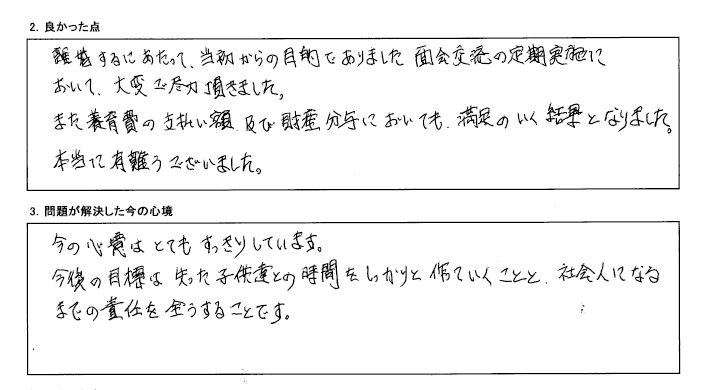 2. 良かった点
離婚するにあたって、当初からの目的でありました 面会交流の定期実施に
おいて、大変ご尽力頂きました。
また養育費の支払い額 及び 財産分与においても、満足のいく結果となりました。
本当に有難うございました。
3. 問題が解決した今の心境
今の心境はとてもすっきりしています。
今後の目標は 失った子供達との時間をしっかりと作っていくことと、社会人になる
までの責任を全うすることです。